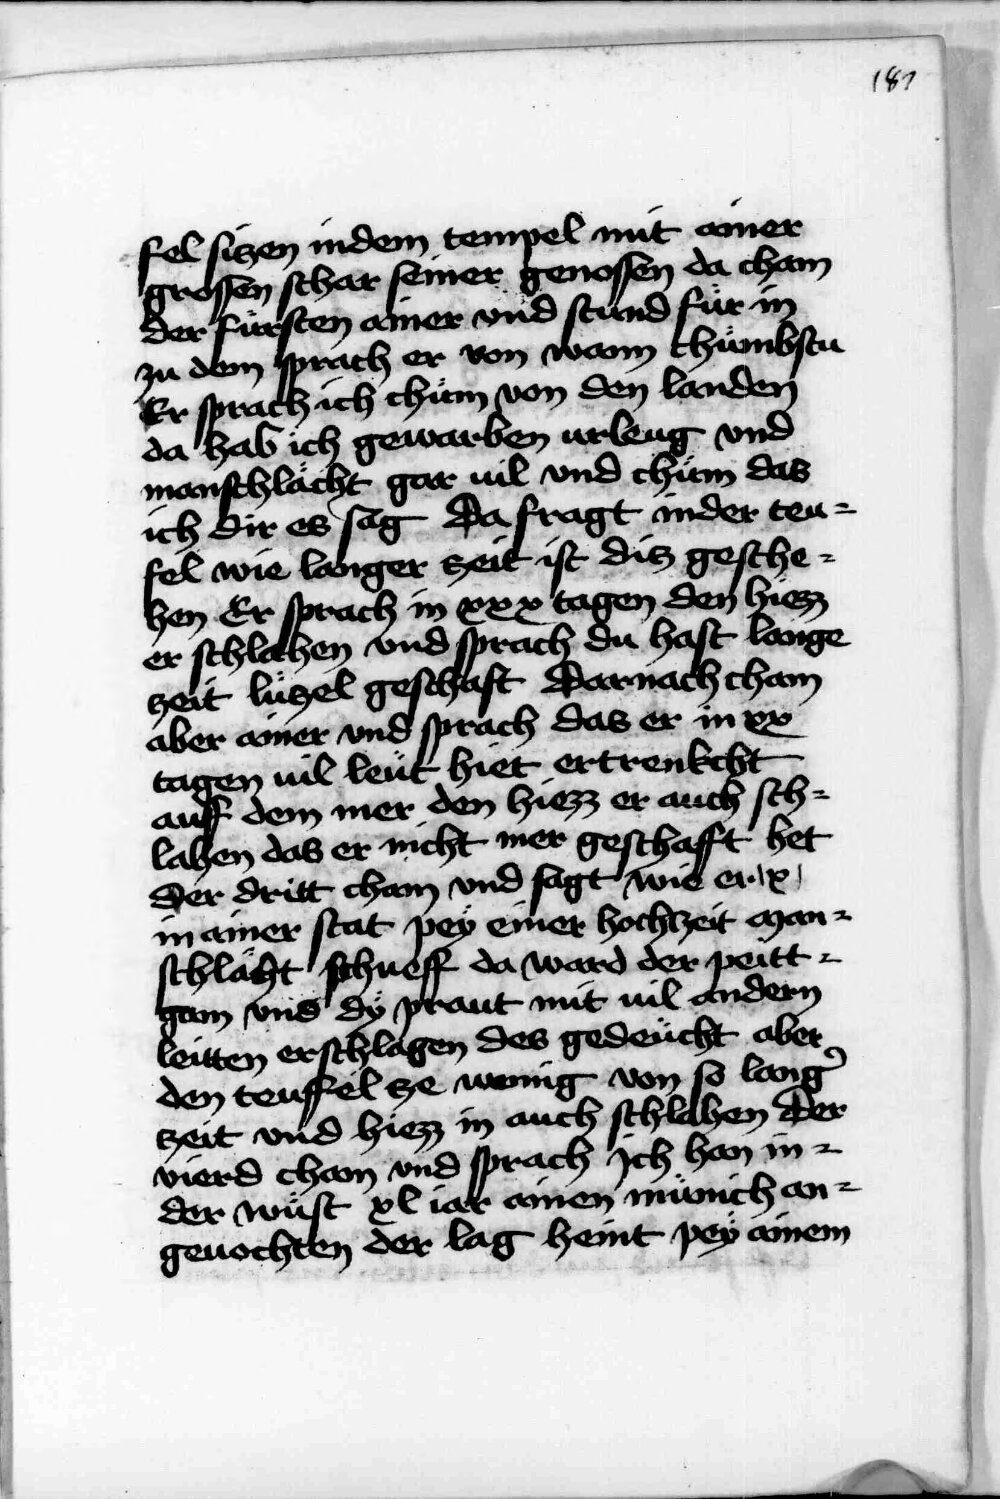 187
fel siczen indem tempel mit ainer
grossen schar seiner genossen da cham
der fürsten ainer vnd stund für in
zu dem sprach er von wann chümbstu
Er sprach ich chüm von den landen
da hab ich gewarben urleug vnd
manschlächt gar uil vnd chüm das
ich dir es sag Da fragt inder teu⸗
fel wie langer zeit ist dis gesche⸗
hen Er sprach in xxx tagen den hiezz
er schlahen vnd sprach du hast lange
zeit lüczel geschaft Darnach cham
aber ainer vnd sprach das er in xx
tagen uil leüt hiet ertrenkcht
auff dem mer den hiezz er auch sch⸗
lahen das er nicht mer geschafft het
Der dritt cham vnd sagt wie er x
in ainer stat peÿ einer hochzeit man⸗
schlächt schueff da ward der peitt⸗
gam vnd dÿ praut mit uil andern
leitten erschlagen des gedeücht aber
den teuffel ze wenig von so lang
zeit vnd hiezz in auch schlahen Der
vierd cham vnd sprach Ich han in⸗
der wüst xl iar ainen münich an⸗
geuochten der lag heint peÿ ainem